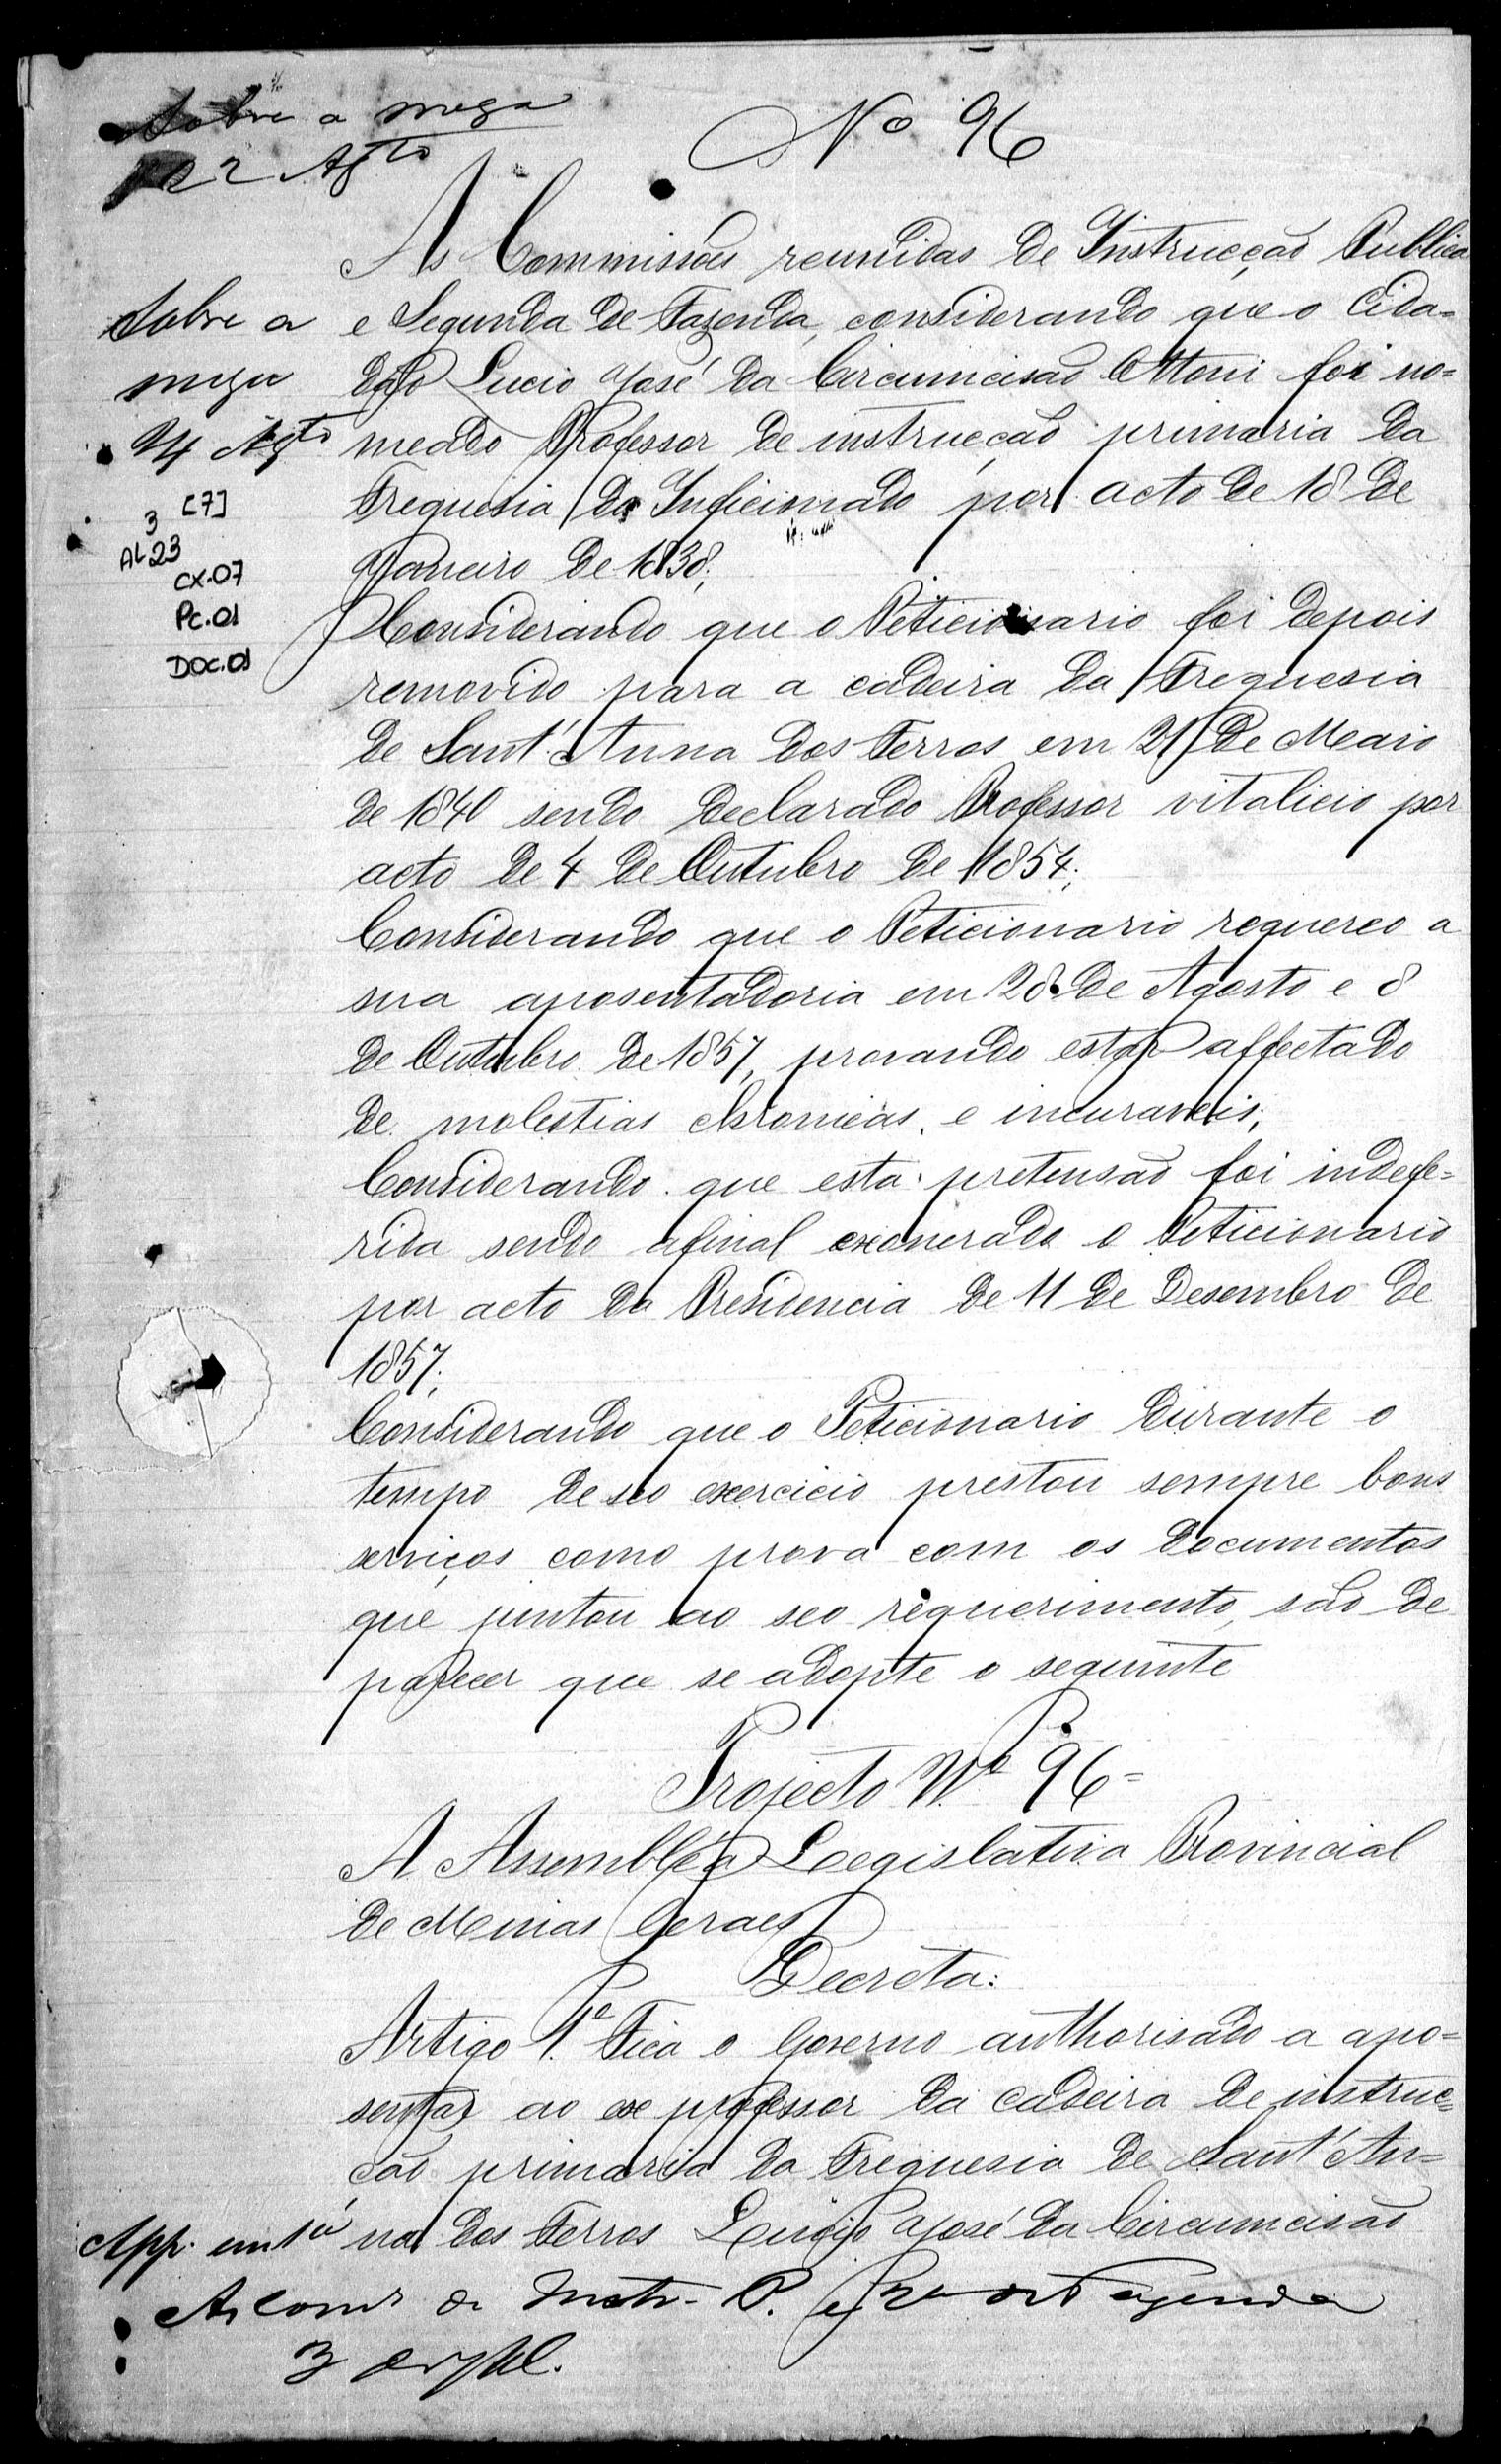 Sobre a meza
22 Agto
Nº 96
As Commissões reunidas de Instrucção Publica
Sobre a
meza
24 Agto
[7]
3
AL 23
CX.07
Pc.01
DOC.01
e Segunda de Fazenda, considerando que o Cida-
dão Lucio José da Circumcisão Ottoni foi no-
meado Professor de instrucção primaria da
Freguesia do Inficionado por acto de 18 de
Janeiro de 1838;
Considerando que o Peticionario foi depois
removido para a cadeira da Freguesia
de Sant'Anna dos Ferros em 21 de Maio
de 1840 sendo declarado Professor vitalicio por
acto de 4 de Outubro de 1854;
Considerando que o Peticionario requereo a
sua aposentadoria em 28 de Agosto e 8
de Outubro de 1857, provando estar affectado
de molestias chronicas, e incuraveis;
Considerando que esta pretensão foi indefe-
rida sendo afinal exonerado o Peticionario
por acto da Presidencia de 11 de Desembro de
1857;
Considerando que o Peticionario durante o
tempo de seo exercicio prestou sempre bons
serviços como prova com os documentos
que juntou ao seo requerimento, são de
parecer que se adopte o seguinte
Projecto Nº 96=
A Assembléa Legislativa Provincial
de Minas Geraes
Decreta:
Artigo 1º Fica o Governo authorisado a apo=
sentar ao ex professor da cadeira de instruc=
cão primaria da Freguesia de Sant'An=
na dos Ferros Lucio José da Circumcisão
App. em 1ª
As Comms de Instr. P. e 2ª de Fazenda
3